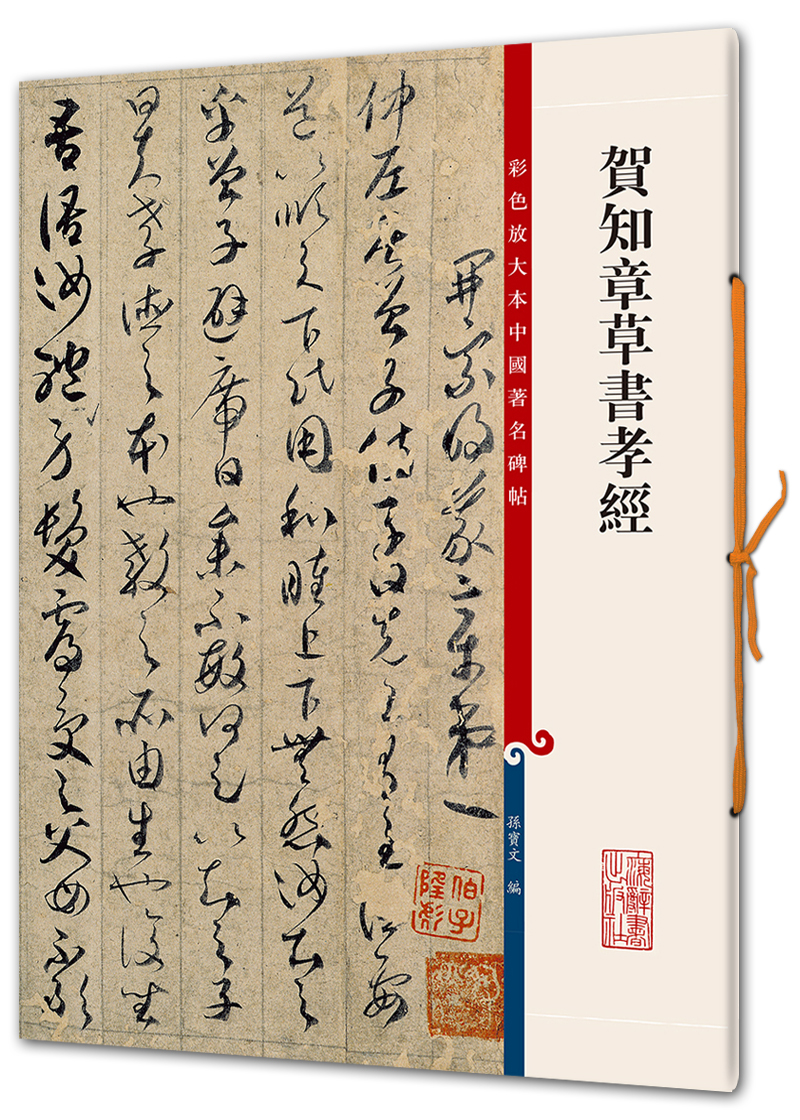 賀知章草書孝經
彩色放大本中國著名碑帖
孫寶文 編
上海辭書出版社
開宗明義章第一
仲尼居曾子侍子曰先王有至德要
道以順天下民用和睦上下無怨汝知之
乎曾子避席曰參不敏何足以知之子
曰夫孝德之本也教之所由生也復坐
吾語汝體身髮膚受之父母不敢